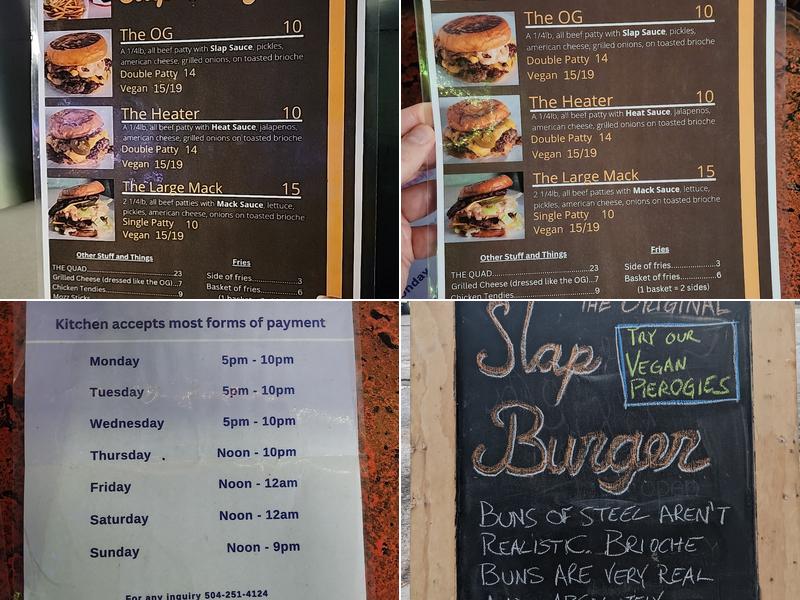 The OG 10
A 1/4lb, all beef patty with Slap Sauce, pickles,
american cheese, grilled onions, on toasted brioche
Double Patty 14
Vegan 15/19
The Heater 10
A 1/4lb, all beef patty with Heat Sauce, jalapenos,
american cheese, grilled onions on toasted brioche
Double Patty 14
Vegan 15/19
The Large Mack 15
2 1/4lb, all beef patties with Mack Sauce, lettuce,
pickles, american cheese, onions on toasted brioche
Single Patty 10
Vegan 15/19
Other Stuff and Things
THE QUAD 23
Grilled Cheese (dressed like the OG) 7
Chicken Tendies 9
Mozz Sticks
Fries
Side of fries 3
Basket of fries 6
(1 basket
The OG 10
A 1/4lb, all beef patty with Slap Sauce, pickles,
american cheese, grilled onions, on toasted brioche
Double Patty 14
Vegan 15/19
The Heater 10
A 1/4lb, all beef patty with Heat Sauce, jalapenos,
american cheese, grilled onions on toasted brioche
Double Patty 14
Vegan 15/19
The Large Mack 15
2 1/4lb, all beef patties with Mack Sauce, lettuce,
pickles, american cheese, onions on toasted brioche
Single Patty 10
Vegan 15/19
Other Stuff and Things
THE QUAD 23
Grilled Cheese (dressed like the OG) 7
Chicken Tendies 9
Fries
Side of fries 3
Basket of fries 6
(1 basket = 2 sides)
Kitchen accepts most forms of payment
Monday 5pm - 10pm
Tuesday 5pm - 10pm
Wednesday 5pm - 10pm
Thursday Noon - 10pm
Friday Noon - 12am
Saturday Noon - 12am
Sunday Noon - 9pm
For any inquiry 504-251-4124
THE ORIGINAL
Slap
Burger
TRY OUR
VEGAN
PIEROGIES
BUNS OF STEEL AREN'T
REALISTIC. BRIOCHE
BUNS ARE VERY REAL